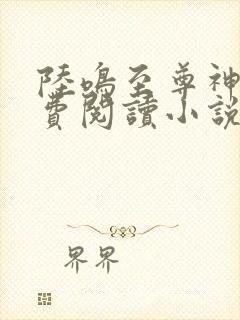 陸鳴至尊神
費閱讀小說
界界